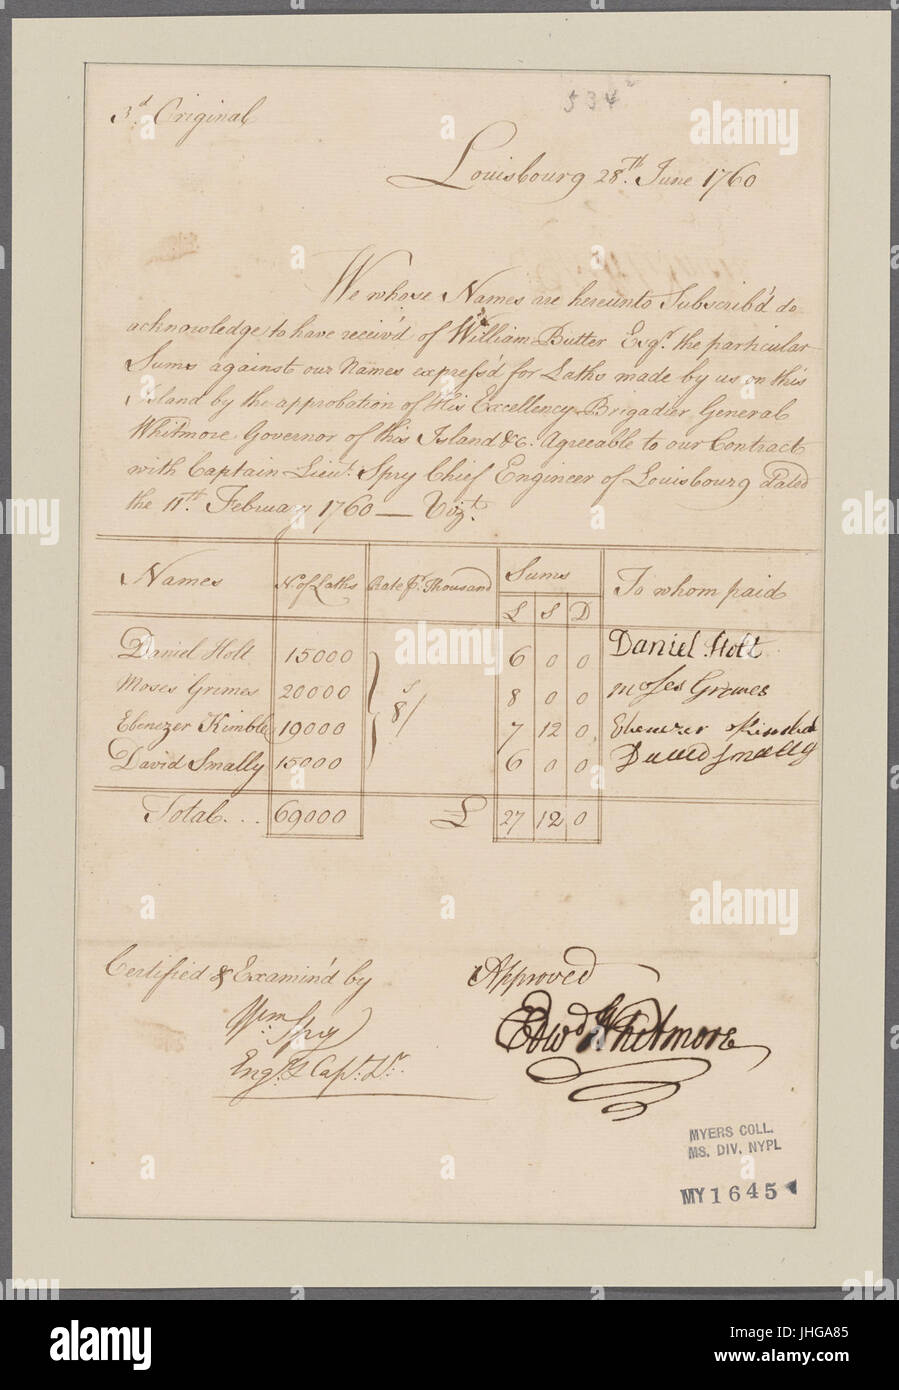 534²
3.d Original
Louisbourg 28.Th June 1760
We whose Names are hereunto Subscrib'd do
acknowledge to have receiv'd of William Butter Esqr. the particular
Sums against our Names express'd for Laths made by us on this
Island by the approbation of His Excellency Brigadier General
Whitmore Governor of this Island &c. Agreeable to our Contract
with Captain Lieut. Spry Chief Engineer of Louisbourg Dated
the 11th. February 1760 — Vizt.
Names No of Laths Rate Pr. Thousand Sums To whom paid
L S D
Daniel Holt 15000 6 0 0 Daniel Holt
Moses Grimes 20000 8 0 0 Moses Grimes
Ebenezer Kimble 19000 8/s 7 12 0 Ebenezer
David Smally 15000 6 0 0 David Smally
Total... 69000 £ 27 12 0
Certified & Examin'd by Approved
Wm Spry Edwd Whitmore
Engr. & Capt. Lr.
MYERS COLL.
MS. DIV. NYPL
MY 1645
alamy
alamy stock photo
JHGA85
www.alamy.com